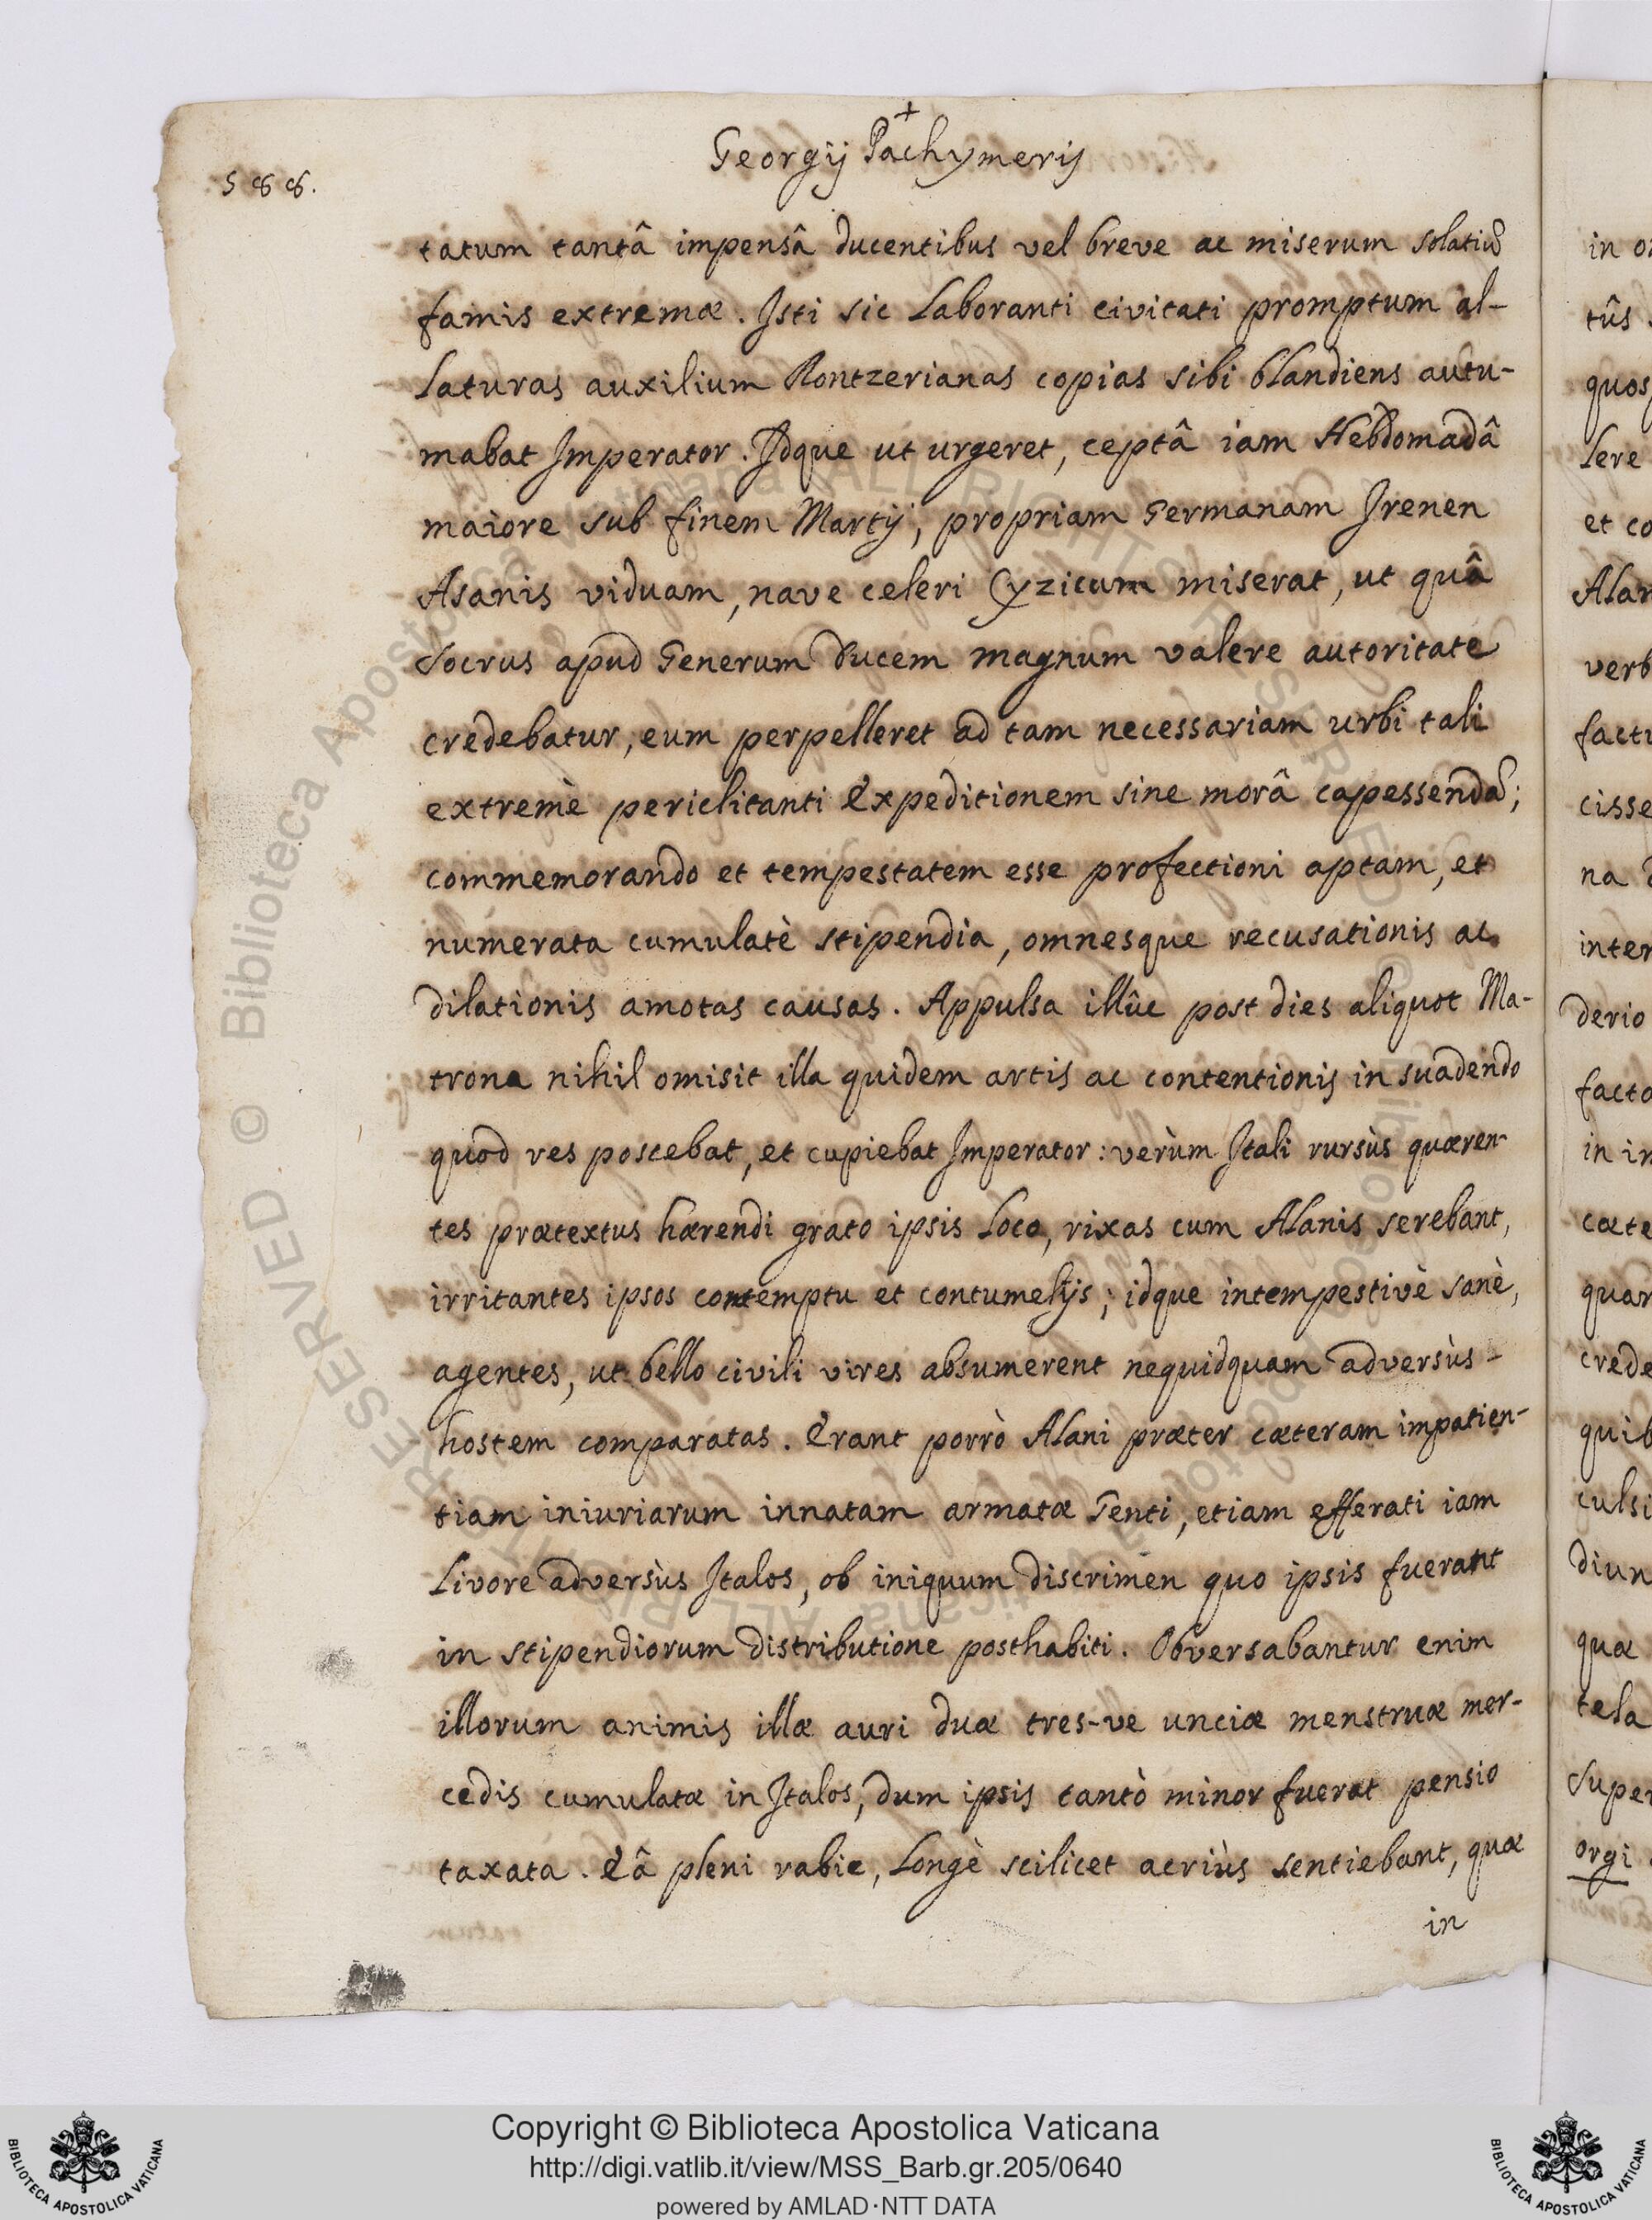 +
Georgij Pachymeris
588.
tatum tantâ impensâ ducentibus vel breve ac miserum solatiũ
famis extremæ. Isti sic laboranti civitati promptum al-
laturas auxilium Rontzerianas copias sibi blandiens autu-
mabat Imperator. Idque ut urgeret, ceptâ iam Hebdomadâ
maiore sub finem Martij, propriam Germanam Irenen
Asanis viduam, nave celeri Cyzicum miserat, ut quâ
Socrus apud Generum Ducem magnum valere autoritate
credebatur, eum perpelleret ad tam necessariam urbi tali
extremè periclitanti Expeditionem sine morâ capessendã;
commemorando et tempestatem esse profectioni aptam, et
numerata cumulatè stipendia, omnesque recusationis ac
dilationis amotas causas. Appulsa illûc post dies aliquot Ma-
trona nihil omisit illa quidem artis ac contentionis in suadendo
quod res poscebat, et cupiebat Imperator: verùm Itali rursùs quæren-
tes prætextus hærendi grato ipsis loco, rixas cum Alanis serebant,
irritantes ipsos contemptu et contumelijs; idque intempestivè sanè,
agentes, ut bello civili vires absumerent nequidquam adversùs-
hostem comparatas. Erant porrò Alani præter cæteram impatien-
tiam iniuriarum innatam armatæ Genti, etiam efferati iam
Livore adversùs Italos, ob iniquum discrimen quo ipsis fuerant
in stipendiorum distributione posthabiti. Obversabantur enim
illorum animis illæ auri duæ tres-ve unciæ menstruæ mer-
cedis cumulatæ in Italos, dum ipsis tantò minor fuerat pensio
taxata. Eâ pleni rabie, longè scilicet acriùs sentiebant, quæ
in
in
tûs
quos
lere
et co
Alan
verb
factu
cisse
na
inter
derio
facto
in in
cæte
quar
crede
quib
culsi
diun
quæ
tela
super
orgi
© Biblioteca Apostolica Vaticana ALL RIGHTS RESERVED © Biblioteca Apostolica Vaticana ALL RIGHTS RESERVED
Copyright © Biblioteca Apostolica Vaticana
http://digi.vatlib.it/view/MSS_Barb.gr.205/0640
powered by AMLAD·NTT DATA
BIBLIOTECA APOSTOLICA VATICANA
BIBLIOTECA APOSTOLICA VATICANA